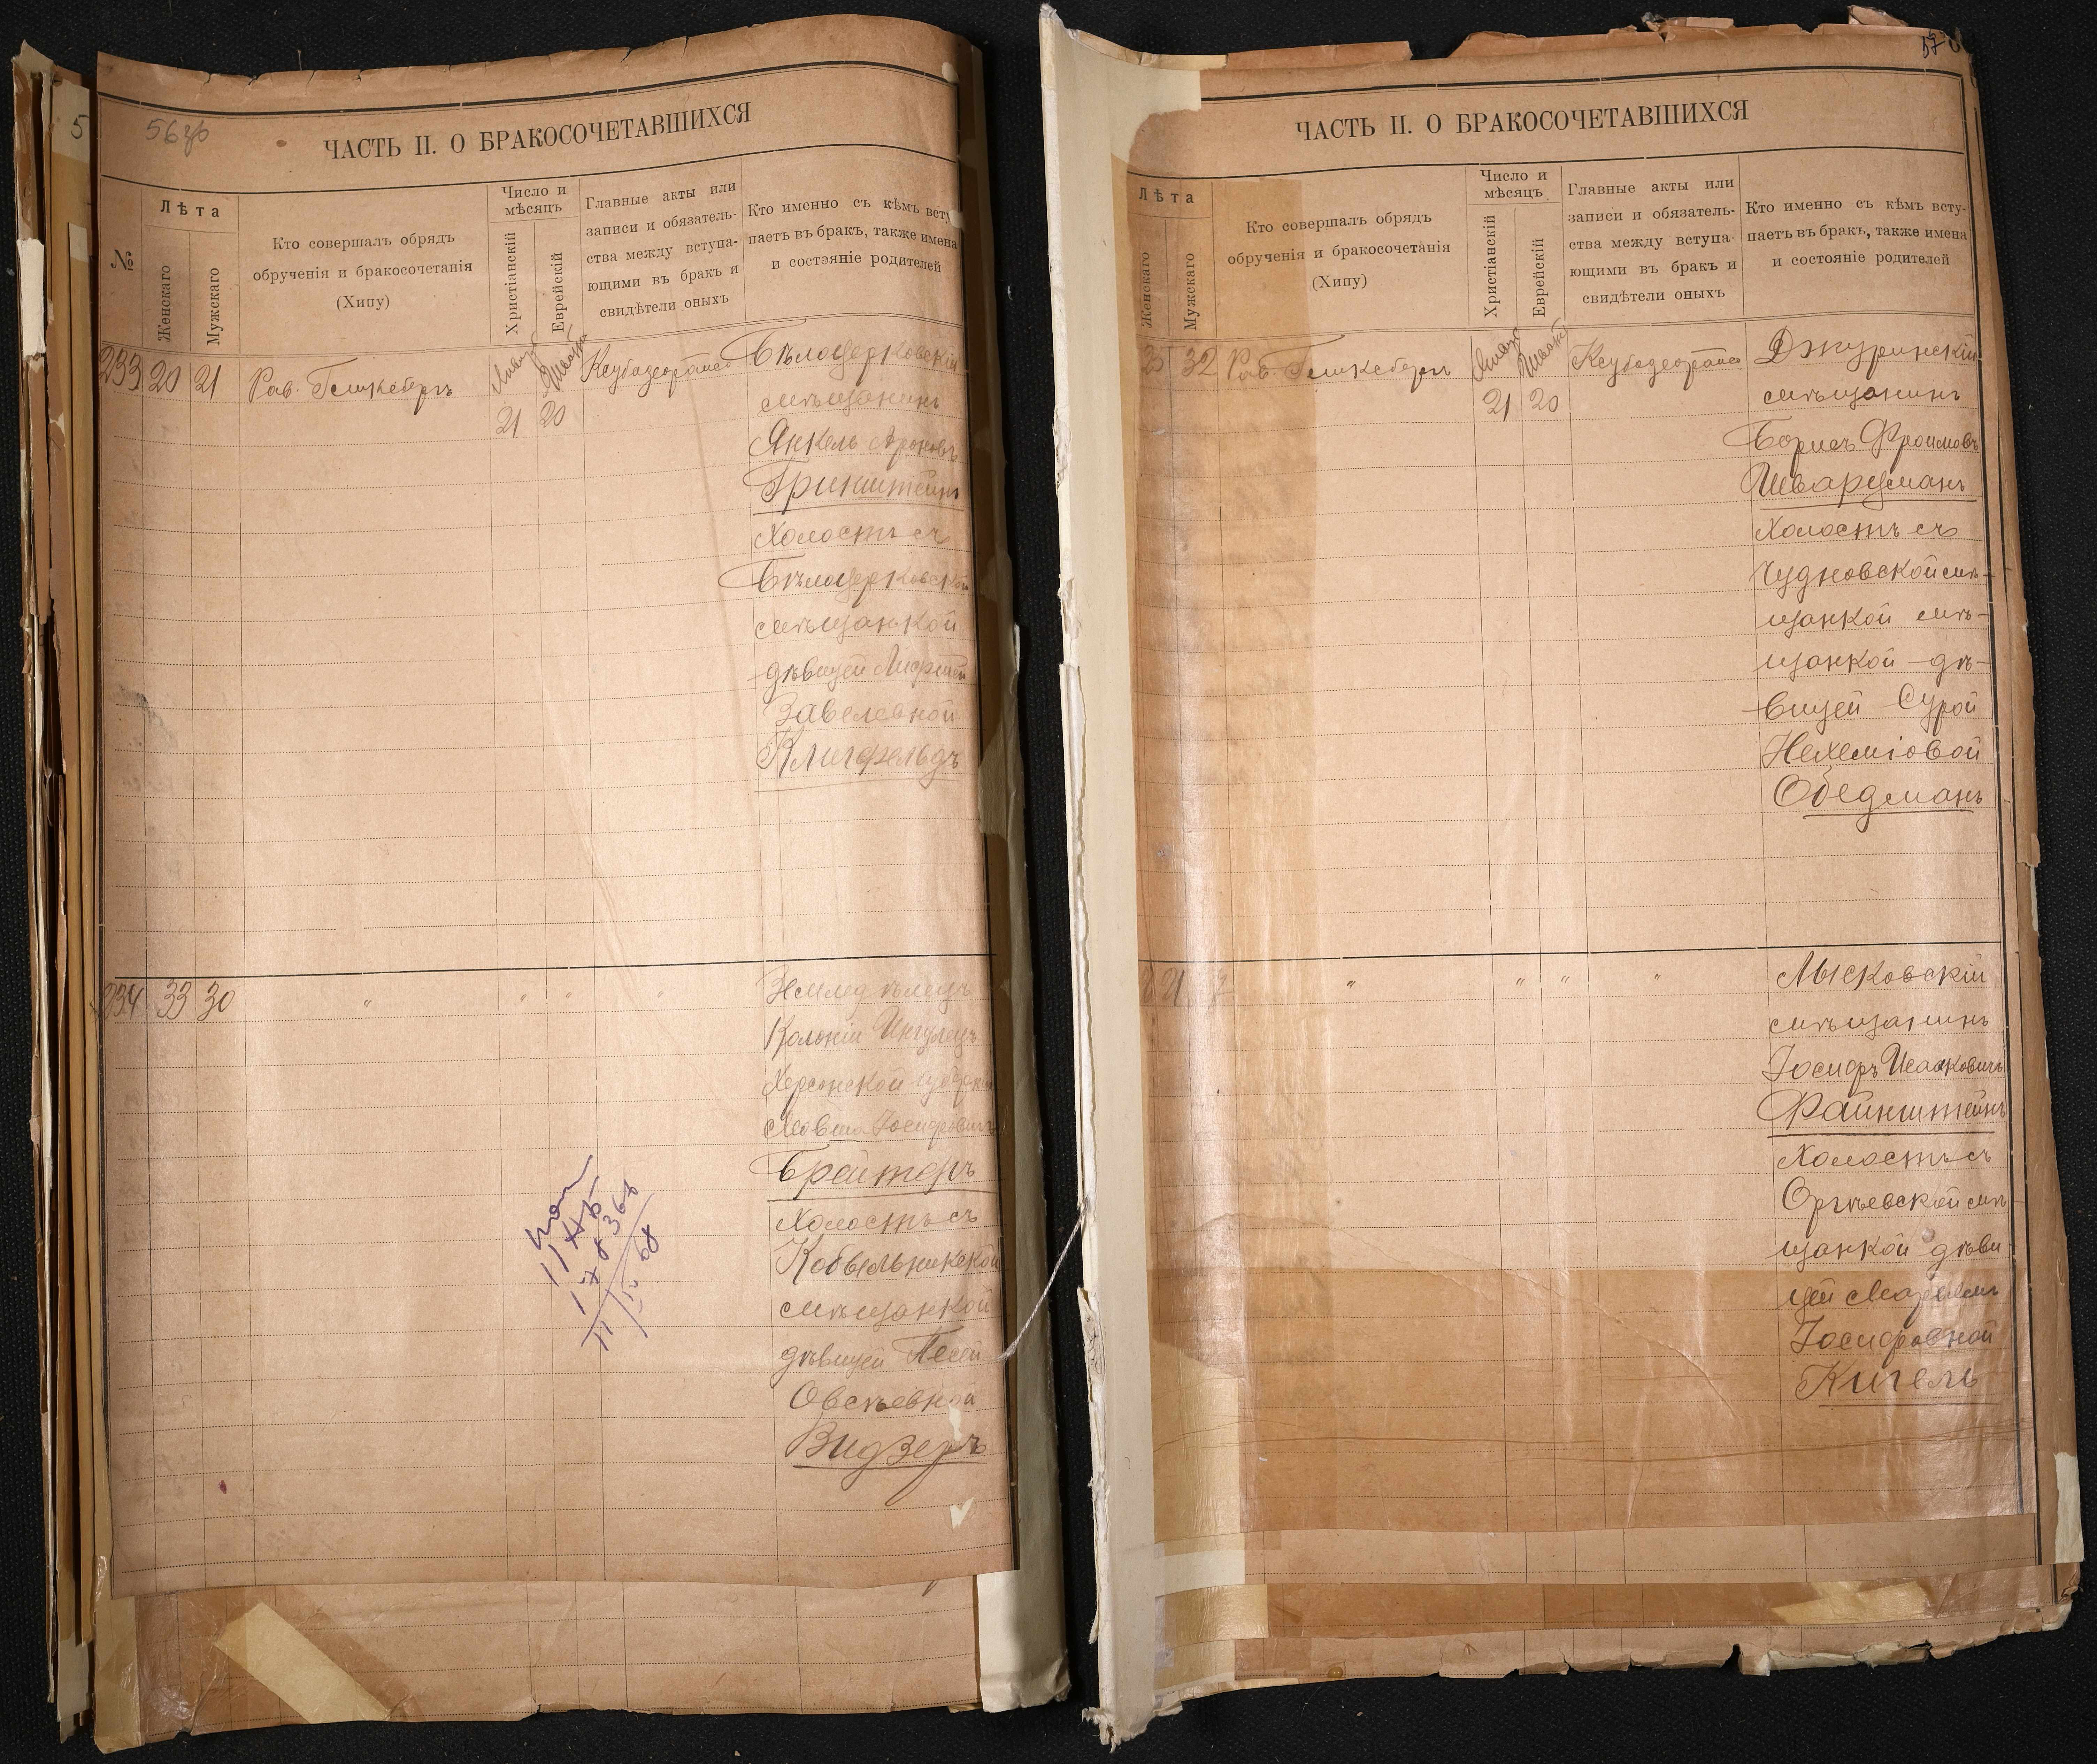 56 зв
ЧАСТЬ II. О БРАКОСОЧЕТАВШИХСЯ
№
Лѣта
Женскаго
Мужскаго
Кто совершалъ обрядъ
обрученія и бракосочетанія
(Хипу)
Число и
мѣсяцъ
Христіанскій
Еврейскій
Главные акты или
записи и обязатель-
ства между вступа-
ющими въ бракъ и
свидѣтели оныхъ
Кто именно съ кѣмъ всту
паетъ въ бракъ, также имена
и состояніе родителей
233 20 21 Рав. Гепкеберъ
21 20
Бѣлоцерковскій
мѣщанинъ
Янкель Ароновъ
Гринштейнъ
холостъ съ
Бѣлоцерковской
мѣщанкой
дѣвицей
Завелевной
Клигфельдъ
234 33 30 " " " "
Земледѣлецъ
Колоніи Ингулецъ
Херсонской губерніи
Мовша Іосифовичъ
Холостъ съ
Кобыльникской
мѣщанкой
дѣвицей Песей
Овсѣевной
Видзеръ
57
ЧАСТЬ II. О БРАКОСОЧЕТАВШИХСЯ
Лѣта
Женскаго
Мужскаго
Кто совершалъ обрядъ
обрученія и бракосочетанія
(Хипу)
Число и
мѣсяцъ
Христіанскій
Еврейскій
Главные акты или
записи и обязатель-
ства между вступа-
ющими въ бракъ и
свидѣтели оныхъ
Кто именно съ кѣмъ всту-
паетъ въ бракъ, также имена
и состояніе родителей
25 32 Рав. Гепкеберъ
21 20
Джуринскій
мѣщанинъ
Борисъ Фроимовъ
Шварцманъ
холостъ съ
Чудновской мѣ-
щанкой мѣ-
щанкой дѣ-
вицей Сурой
Нехеміовой
Обедманъ
" " " "
Лысковскій
мѣщанинъ
Іосифъ Исааковичъ
Файнштейнъ
Холостъ съ
Оргѣевской мѣ
щанкой дѣви
цей
Іосифовной
Кигель